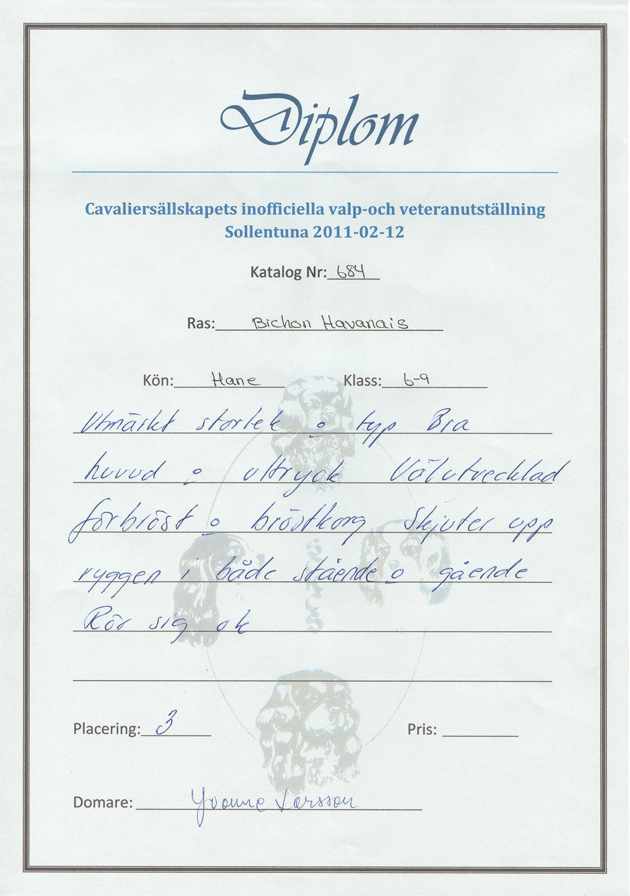 Diplom
Cavaliersällskapets inofficiella valp-och veteranutställning
Sollentuna 2011-02-12
Katalog Nr: 684
Ras: Bichon Havanais
Kön: Hane Klass: 6-9
Utmärkt storlek o typ Bra
huvud o uttryck Välutvecklad
förbröst o bröstkorg Skjuter upp
ryggen i både stående o gående
Rör sig ok
Placering: 3 Pris:
Domare: Yvonne Larsson